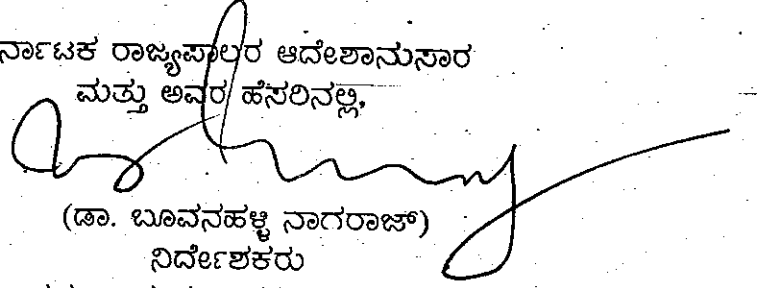 ರ್ನಾಟಕ ರಾಜ್ಯಪಾಲರ ಆದೇಶಾನುಸಾರ
ಮತ್ತು ಅವರ ಹೆಸರಿನಲ್ಲಿ,
(ಡಾ. ಬೂವನಹಳ್ಳಿ ನಾಗರಾಜ್)
ನಿರ್ದೇಶಕರು